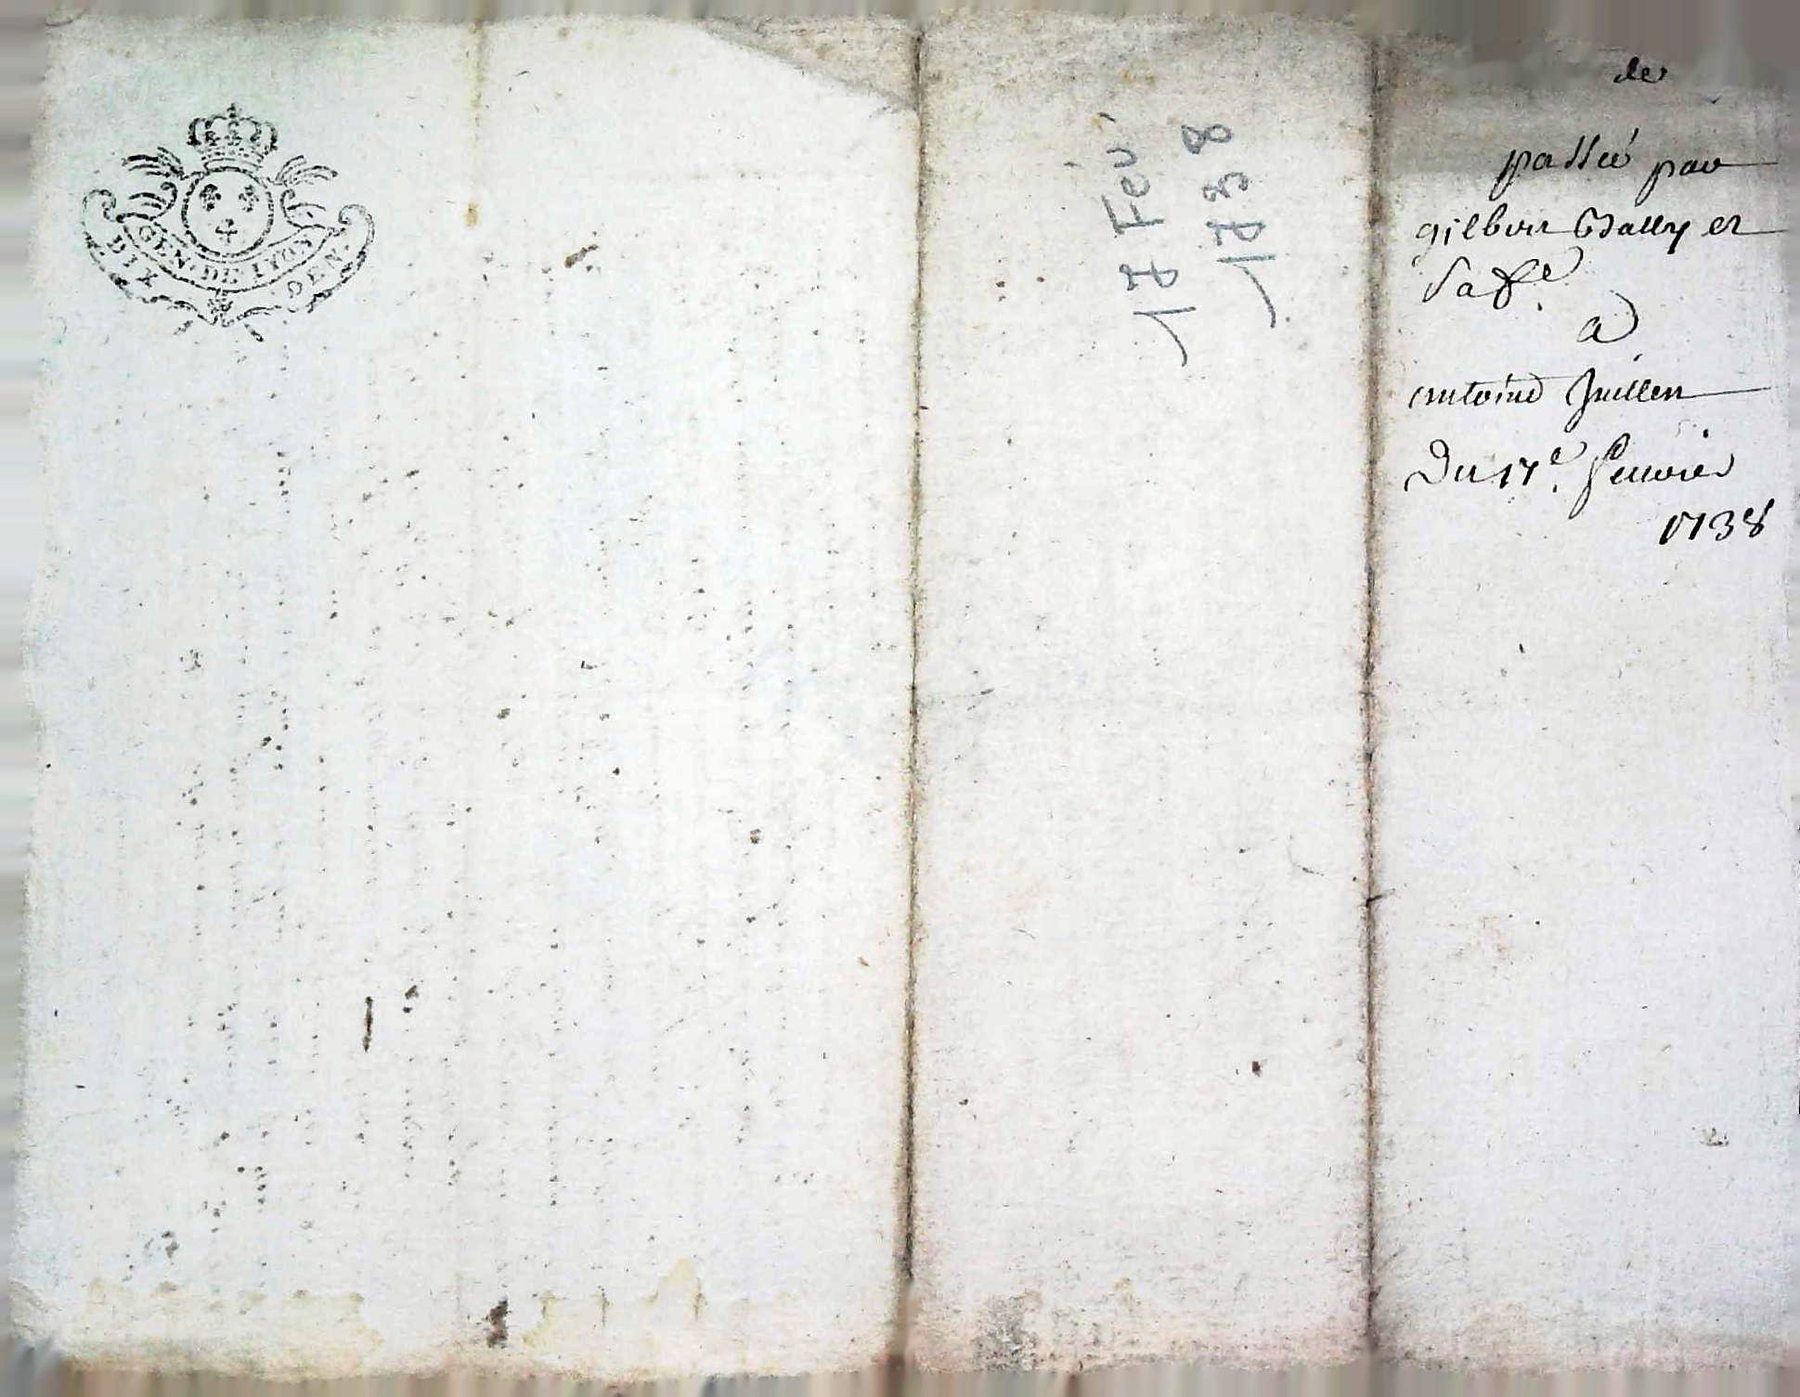 GEN. DE LYON
DIX DEN.
17 Fév
1738
de
passée par
gilbert Bally et
Sa fe
a
antoine Juillen
Du 17e feuvrier
1738